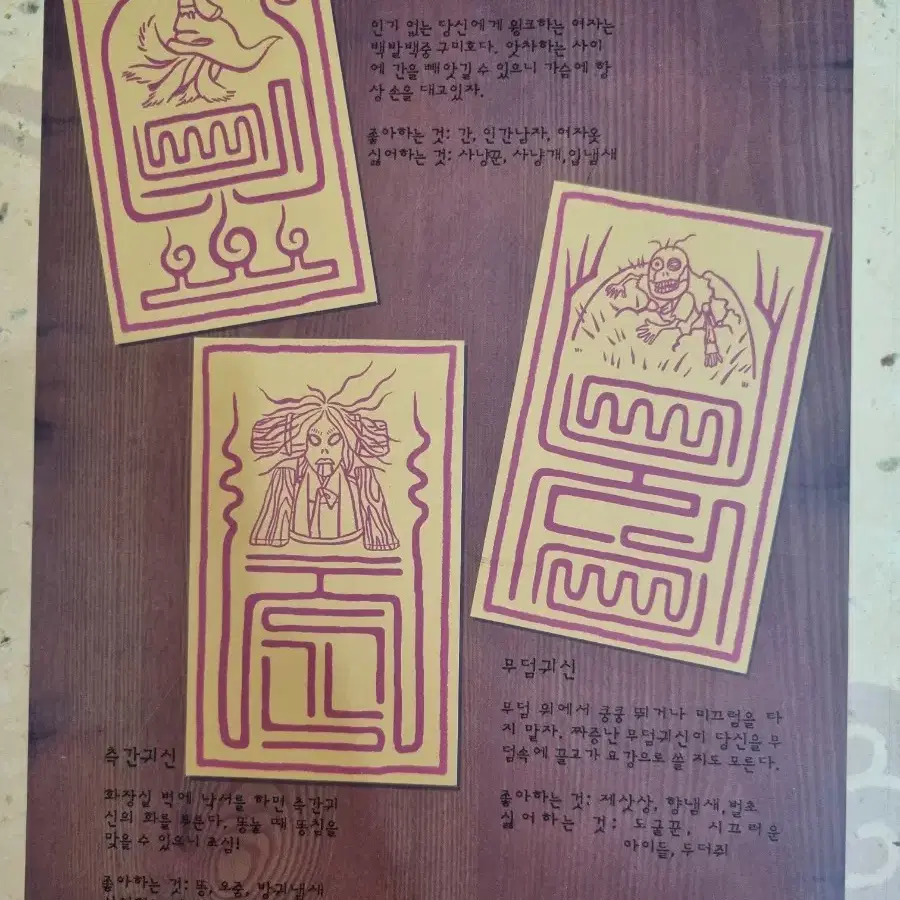 인기 없는 당신에게 윙크하는 여자는
백발백중 구미호다. 아차하는 사이
에 간을 빼앗길 수 있으니 가슴에 항
상 손을 대고있자.
좋아하는 것: 간, 인간남자, 여자옷
싫어하는 것: 사냥꾼, 사냥개, 입냄새
무덤귀신
무덤 위에서 쿵쿵 뛰거나 미끄럼을 타
지 말자. 짜증난 무덤귀신이 당신을 무
덤속에 끌고가 요강으로 쓸 지도 모른다.
좋아하는 것: 제삿상, 향냄새, 벌초
싫어하는 것: 도굴꾼, 시끄러운
아이들, 두더쥐
측간귀신
화장실 벽에 낙서를 하면 측간귀
신의 화를 부른다. 똥눌 때 똥침을
맞을 수 있으니 조심!
좋아하는 것: 똥, 오줌, 방귀냄새